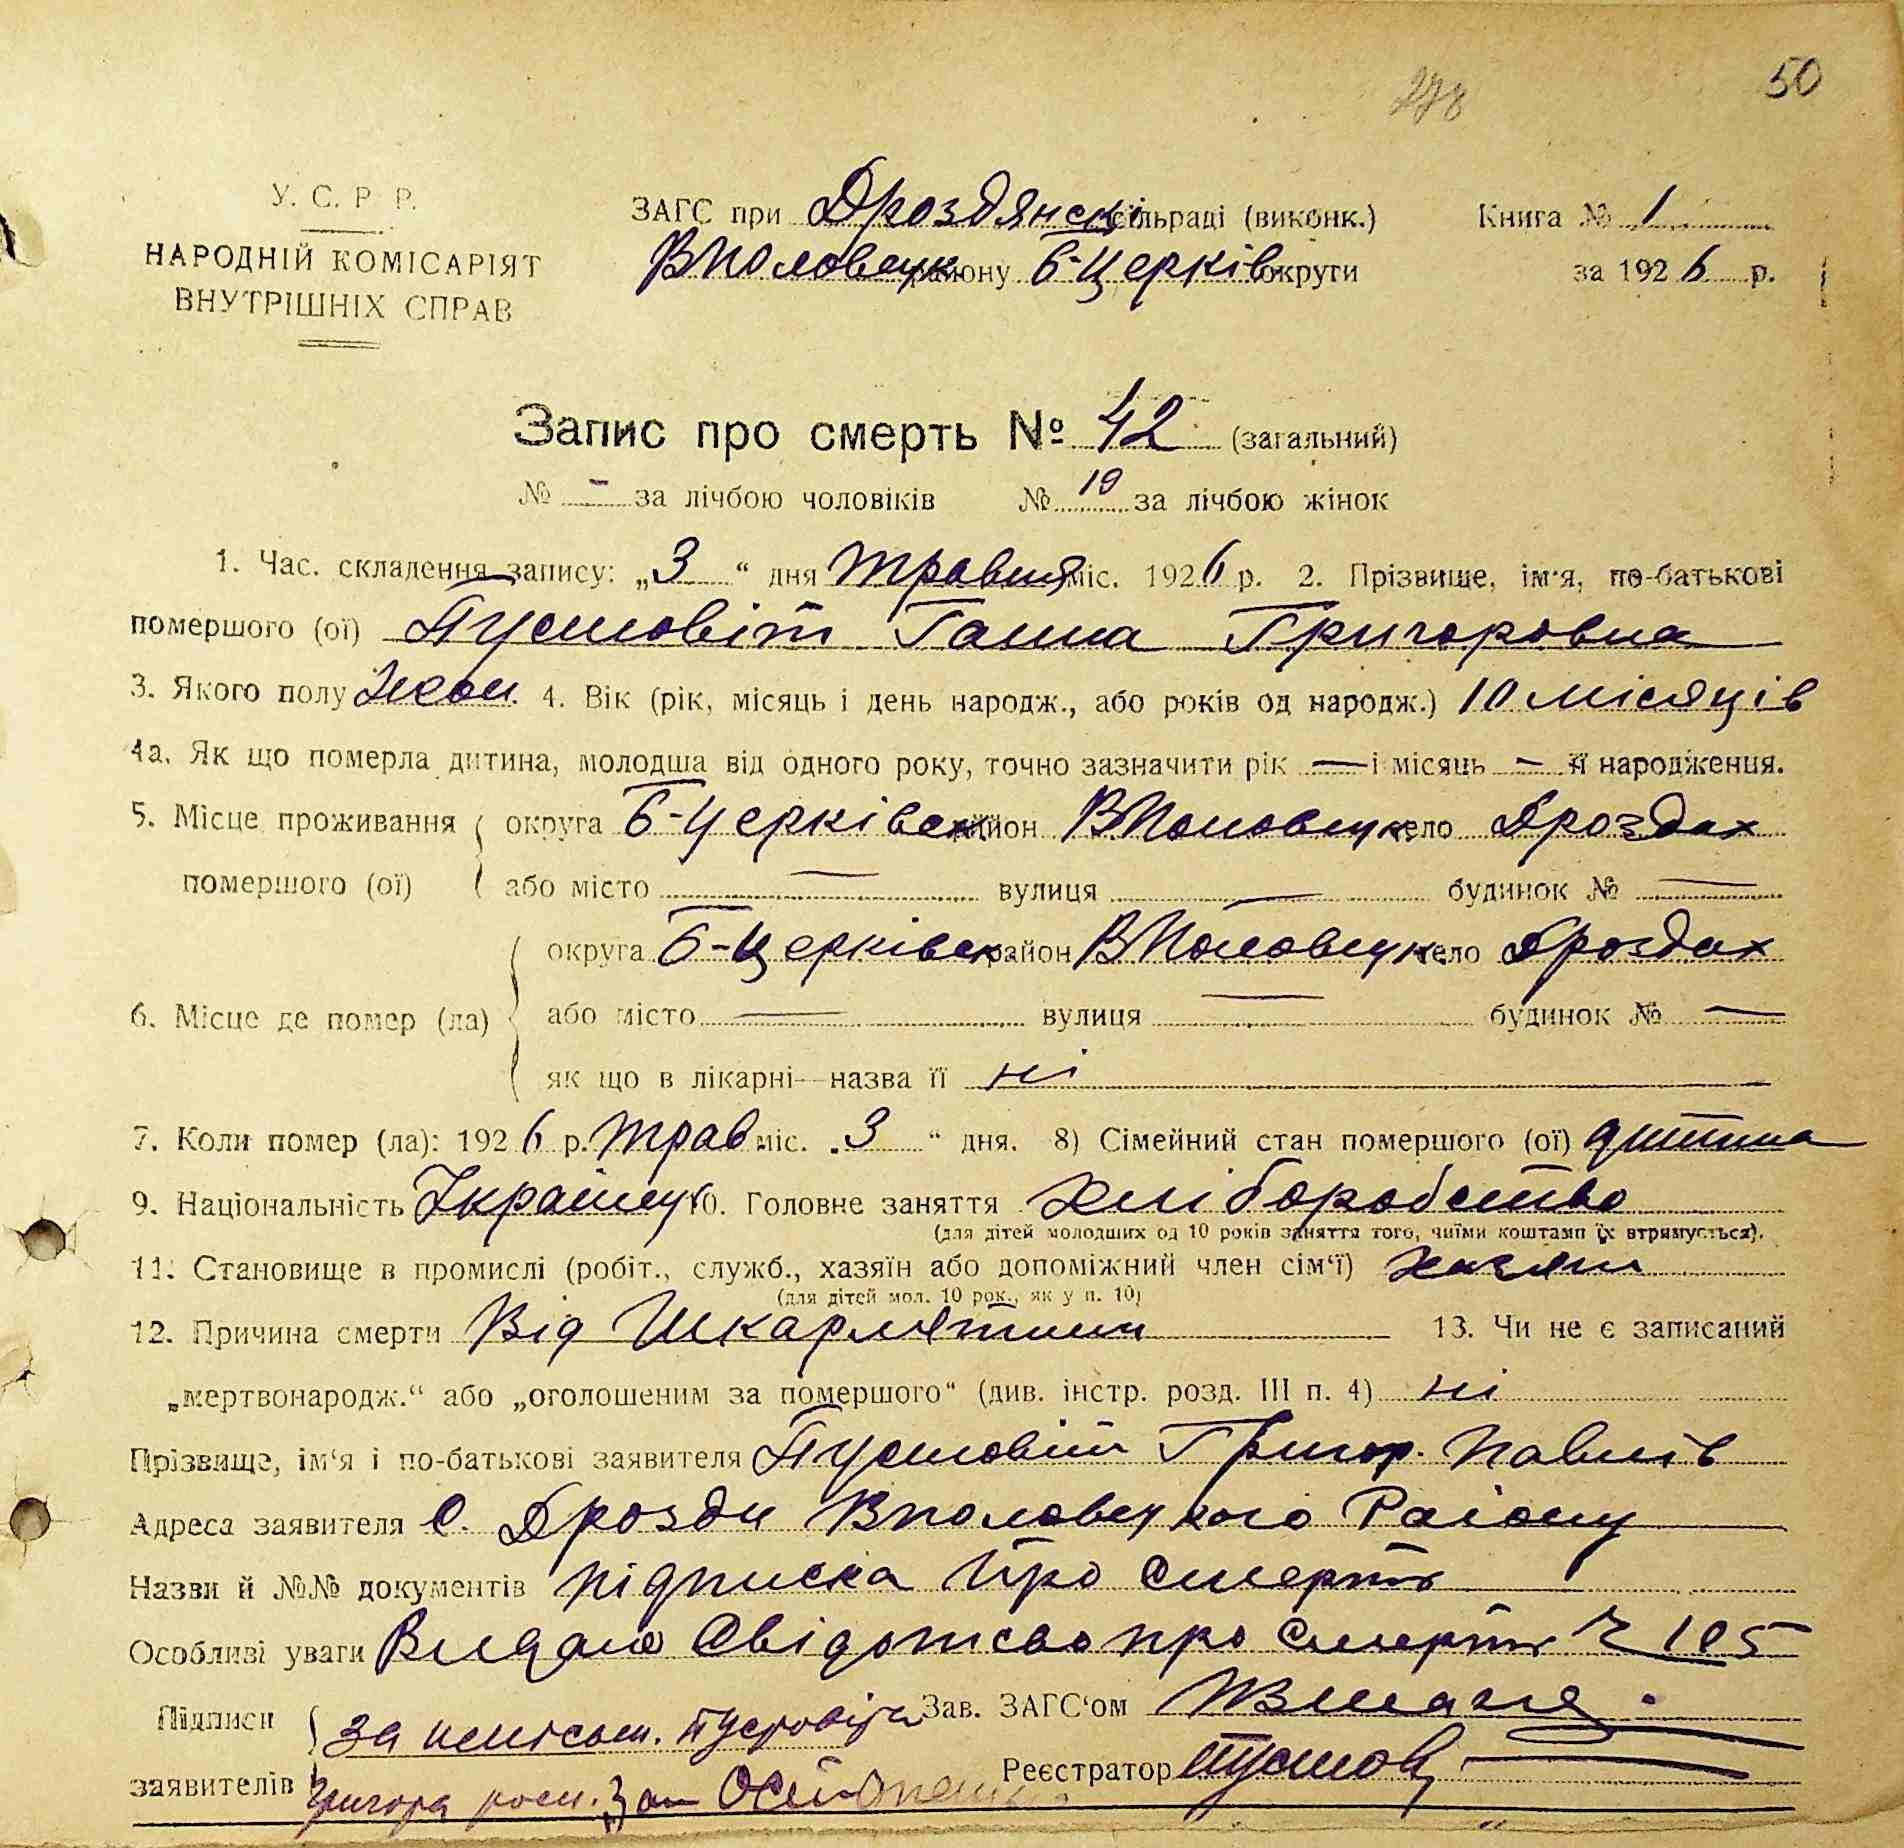 50
278
У. С. Р. Р.
НАРОДНІЙ КОМІСАРІЯТ
ВНУТРІШНІХ СПРАВ
ЗАГС при Дроздянскі сільраді (виконк.) Книга № 1
ВПоловецк району Б-Церків округи за 1926 р.
Запис про смерть № 42 (загальний)
№ - за лічбою чоловіків № 19 за лічбою жінок
1. Час. складення запису: „3“ дня Травня міс. 1926 р. 2. Прізвище, ім'я, по-батькові
помершого (ої) Пустовіт Ганна Григоровна
3. Якого полу Жон. 4. Вік (рік, місяць і день народж., або років од народж.) 10 місяців
4а. Як що померла дитина, молодша від одного року, точно зазначити рік — і місяць — її народження.
5. Місце проживання округа Б-Церківск район ВПоловецк село Дроздах
помершого (ої) або місто — вулиця — будинок № —
округа Б-Церківск район ВПоловецк село Дроздах
6. Місце де помер (ла) або місто — вулиця — будинок № —
як що в лікарні—назва її ні
7. Коли помер (ла): 1926 р. Трав міс. „3“ дня. 8) Сімейний стан помершого (ої) дитина
9. Національність Україец 10. Головне заняття хліборобство
(для дітей молодших од 10 років заняття того, чиїми коштами їх втримується).
11. Становище в промислі (робіт., служб., хазяїн або допоміжний член сім'ї) хазяин
(для дітей мол. 10 рок., як у п. 10)
12. Причина смерти Від Шкарлятини 13. Чи не є записаний
„мертвонародж.“ або „оголошеним за помершого“ (див. інстр. розд. III п. 4) ні
Прізвище, ім'я і по-батькові заявителя Пустовіт Григор. Павлів
Адреса заявителя С. Дрозди Вполовецкого Раіону
Назви й №№ документів підписка про смерть
Особливі уваги Видано Свідотсво про смерть № 105
Підписи За неписьм. Пустовіта Зав. ЗАГС'ом
заявителів Григора росп. Реєстратор Пустов